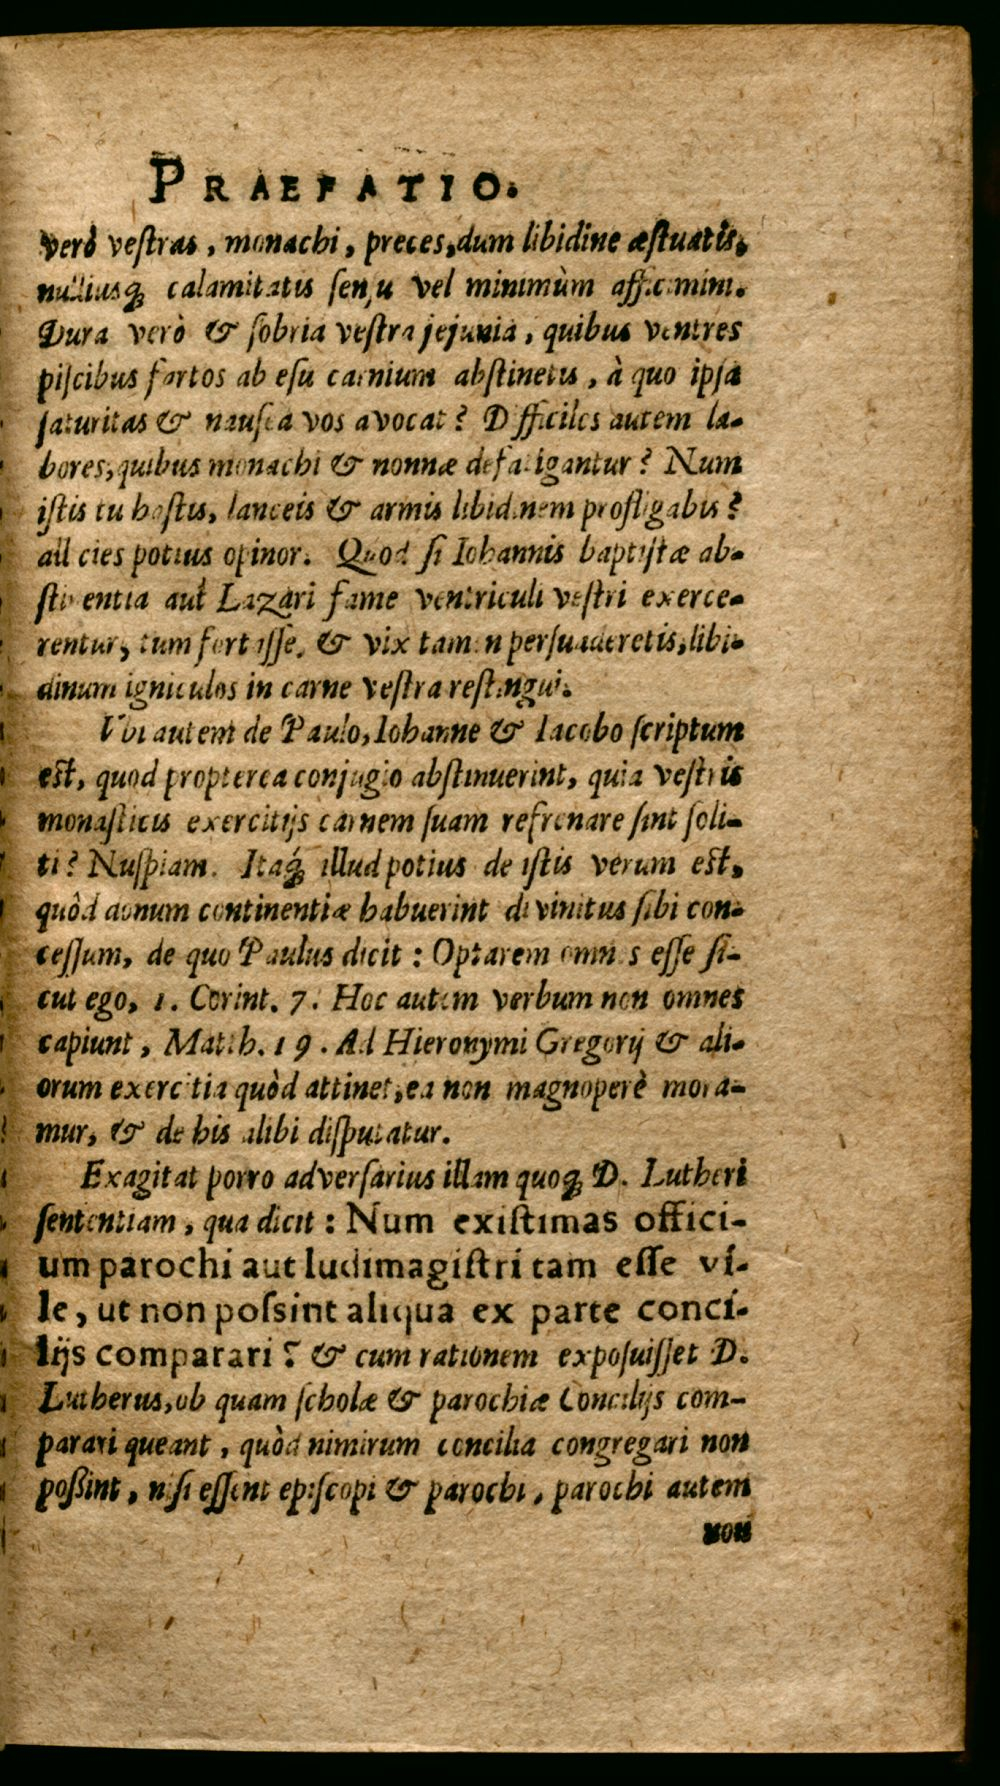 PRAEFATIO.
verò vestras, monachi, preces, dum libidine æstuatis,
nulliusq́; calamitatis sensu vel minimùm afficimini.
Dura verò & sobria vestra jejunia, quibus ventres
piscibus fartos ab esu carnium abstinetis, à quo ipsa
saturitas & nausea vos avocat? Difficiles autem la-
bores, quibus monachi & nonnæ defatigantur? Num
istis tu hastis, lanceis & armis libidinem profligabis?
allicies potius opinor. Quod si Iohannis baptistæ ab-
stinentia aut Lazari fame ventriculi vestri exerce-
rentur, tum fortasse, & vix tamen persuaderetis, libi-
dinum igniculos in carne vestra restingui.
Ubi autem de Paulo, Iohanne & Iacobo scriptum
est, quod propterea conjugio abstinuerint, quia vestris
monasticis exercitijs carnem suam refrenare sint soli-
ti? Nuspiam. Itaq́; illud potius de istis verum est,
quôd donum continentiæ habuerint divinitus sibi con-
cessum, de quo Paulus dicit: Optarem omnes esse si-
cut ego, 1. Corint. 7. Hoc autem verbum non omnes
capiunt, Matth. 19. Ad Hieronymi Gregorij & ali-
orum exercitia quòd attinet, ea non magnoperè mora-
mur, & de his alibi disputatur.
Exagitat porro adversarius illam quoq; D. Lutheri
sententiam, qua dicit: Num existimas offici-
um parochi aut ludimagistri tam esse vi-
le, ut non possint aliqua ex parte conci-
lijs comparari? & cum rationem exposuisset D.
Lutherus, ob quam scholæ & parochiæ Concilijs com-
parari queant, quòd nimirum concilia congregari non
possint, nisi essent episcopi & parochi, parochi autem
non